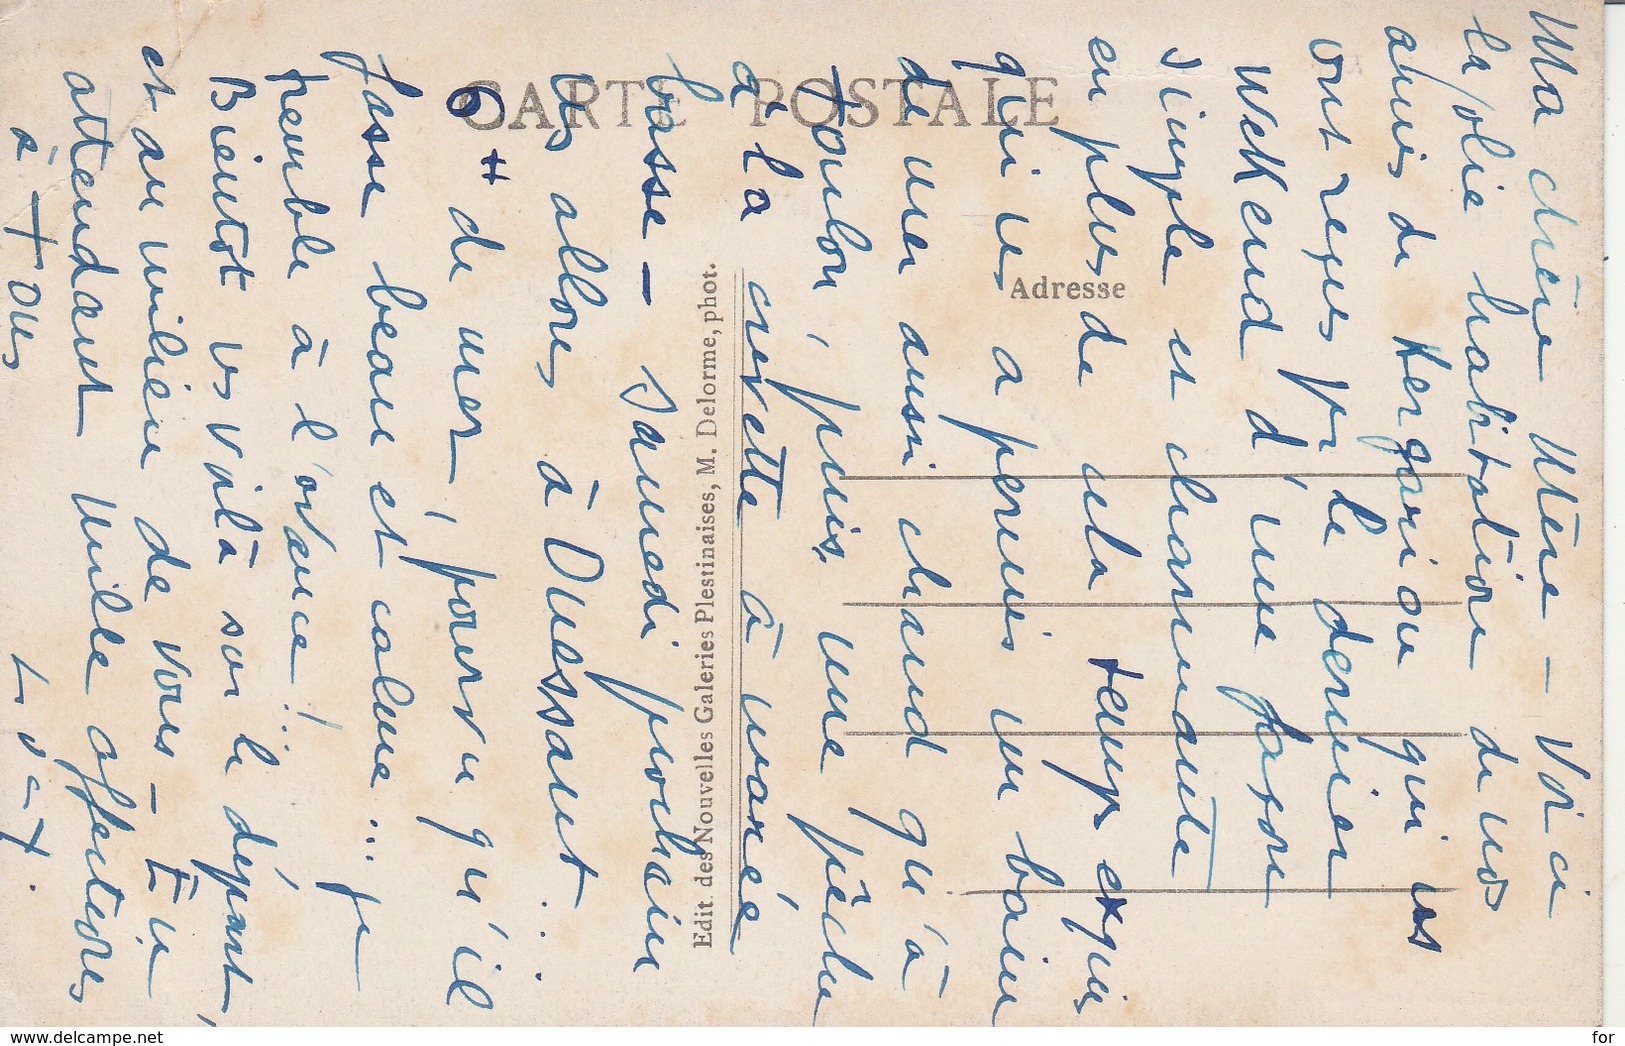 Ma chère Mère – Voici
la jolie habitation de nos
amis de Kergariou qui ns
ont reçus pr le dernier
Weekend d'une façon
simple et charmante
en plus de cela temps exquis
qui ns a permis un bain
de mer aussi chaud qu'à
Toulon, puis, une pêche
à la crevette à marée
basse – Samedi prochain
ns allons à Ouessant...
6 H de mer, pourvu qu'il
fasse beau et calme... je
tremble à l'avance!..
Bientôt vs voilà sur le départ,
et au milieu de vous – En
attendant mille affections
à Tous
CARTE POSTALE
Adresse
Edit. des Nouvelles Galeries Plestinaises, M. Delorme, phot.
www.delcampe.net
for